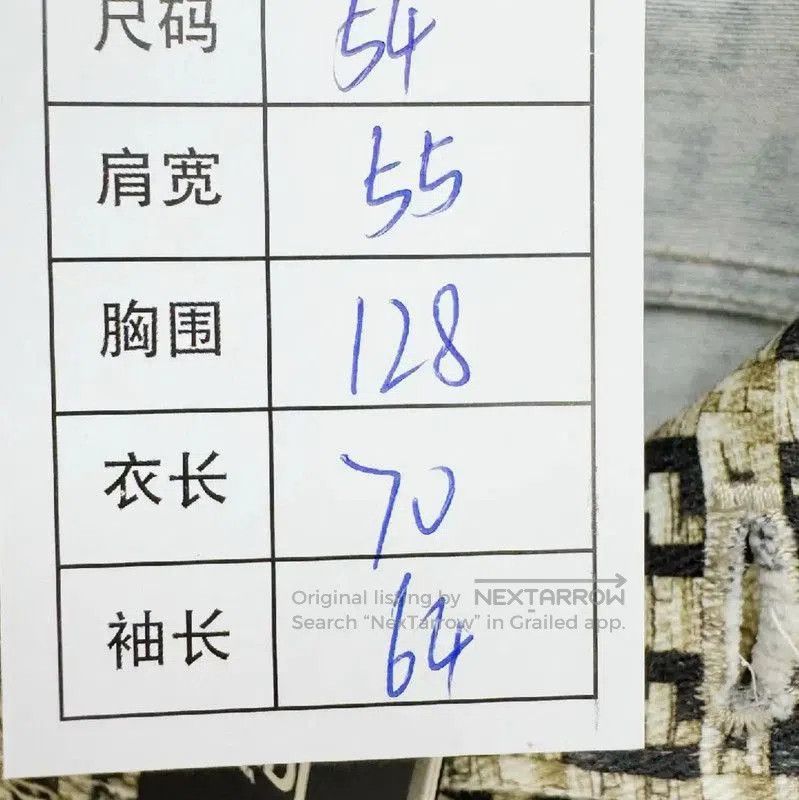 尺码 54
肩宽 55
胸围 128
衣长 70
袖长 64
Original listing by NEXTARROW
Search “NexTarrow” in Grailed app.